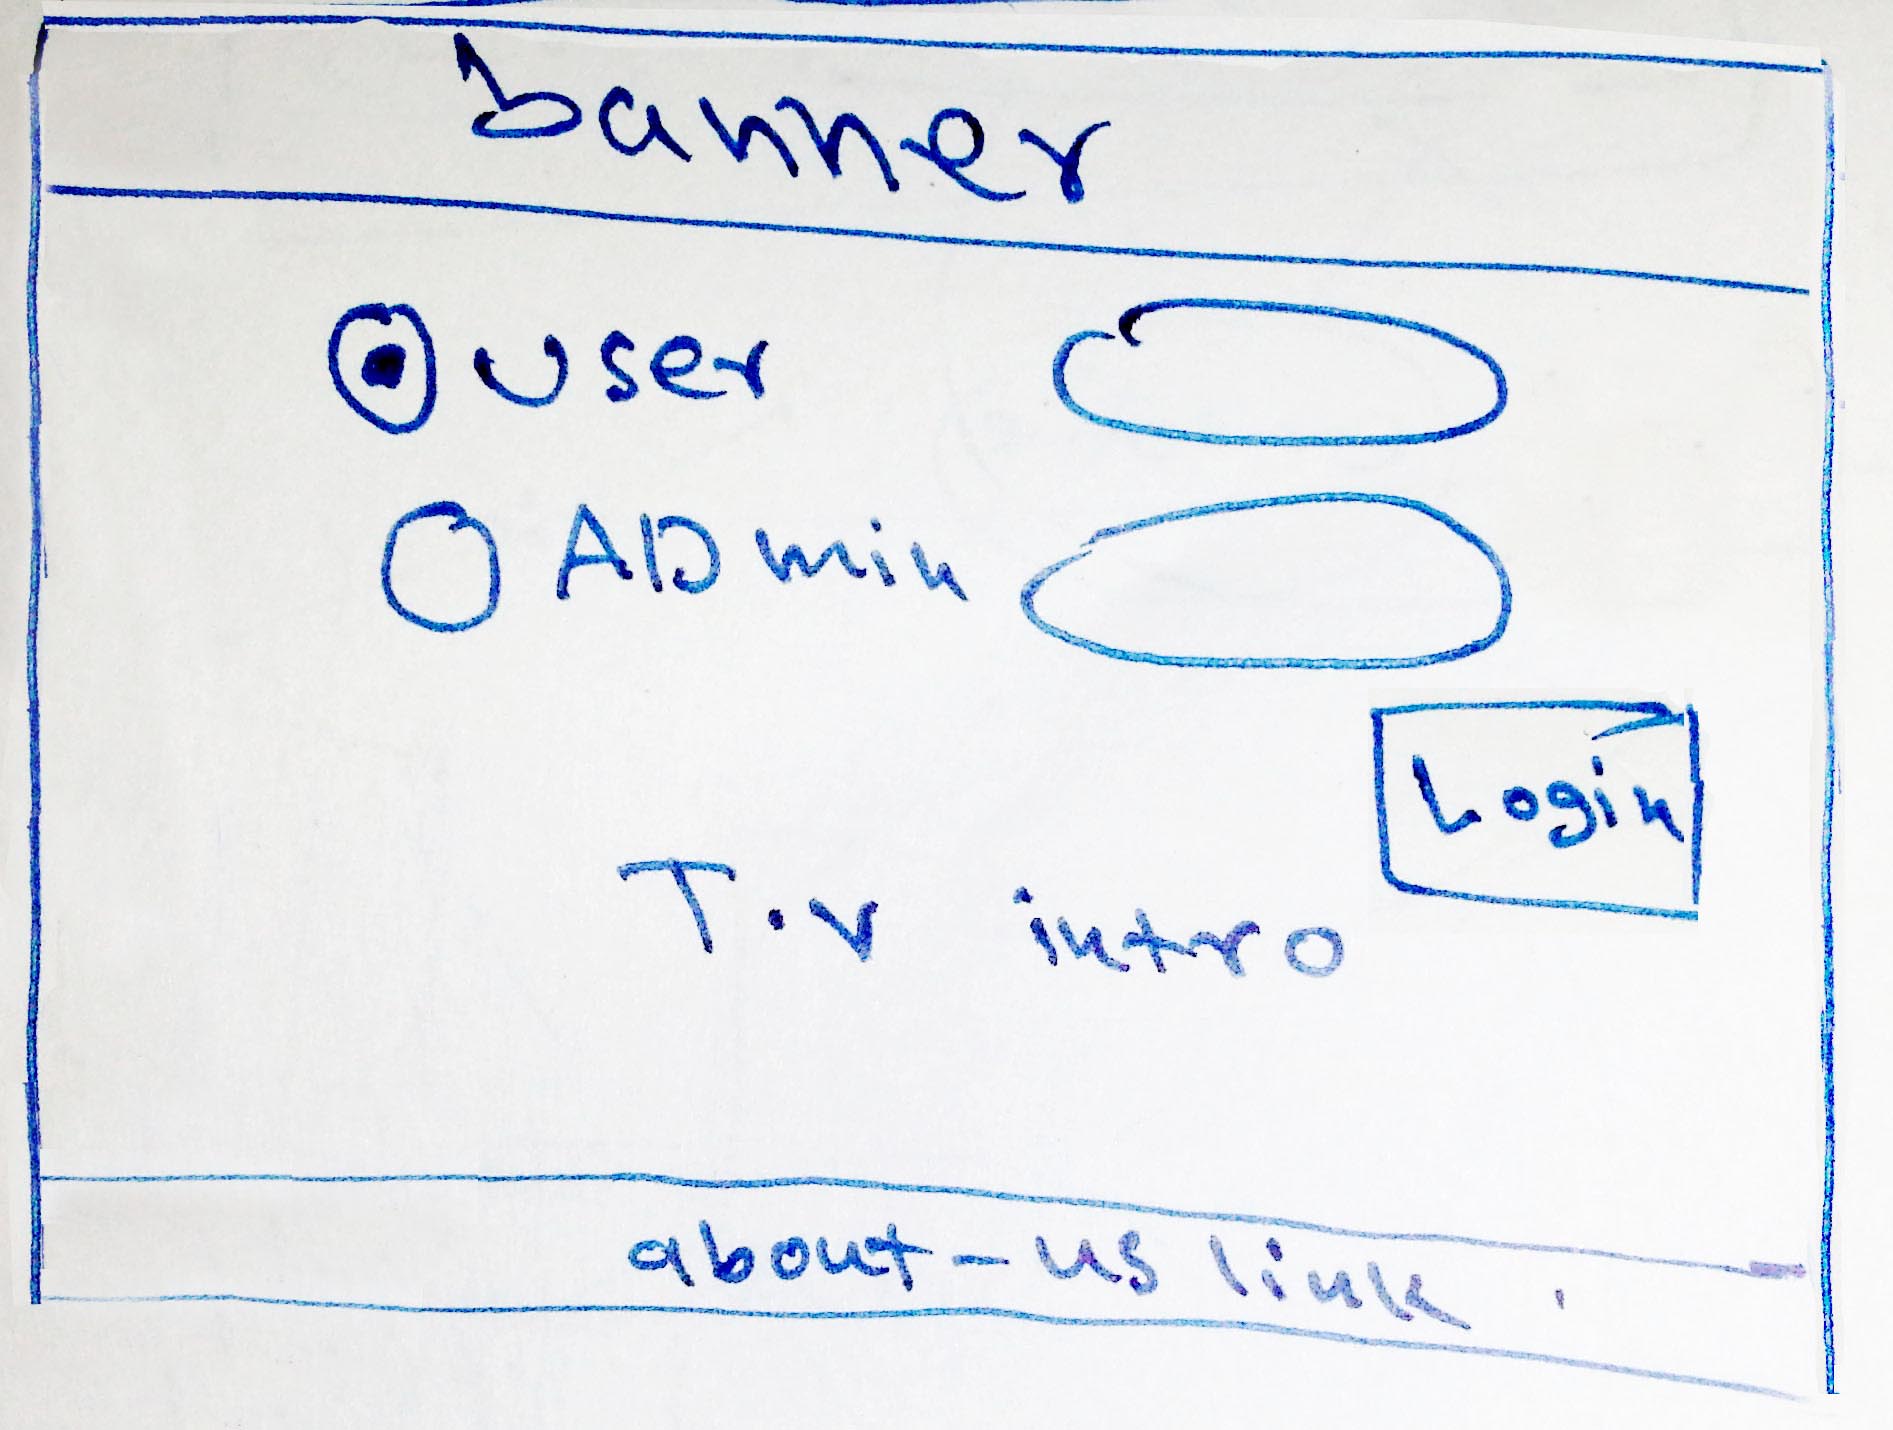 banner
user
ADmin
Login
T.v intro
about-us link.